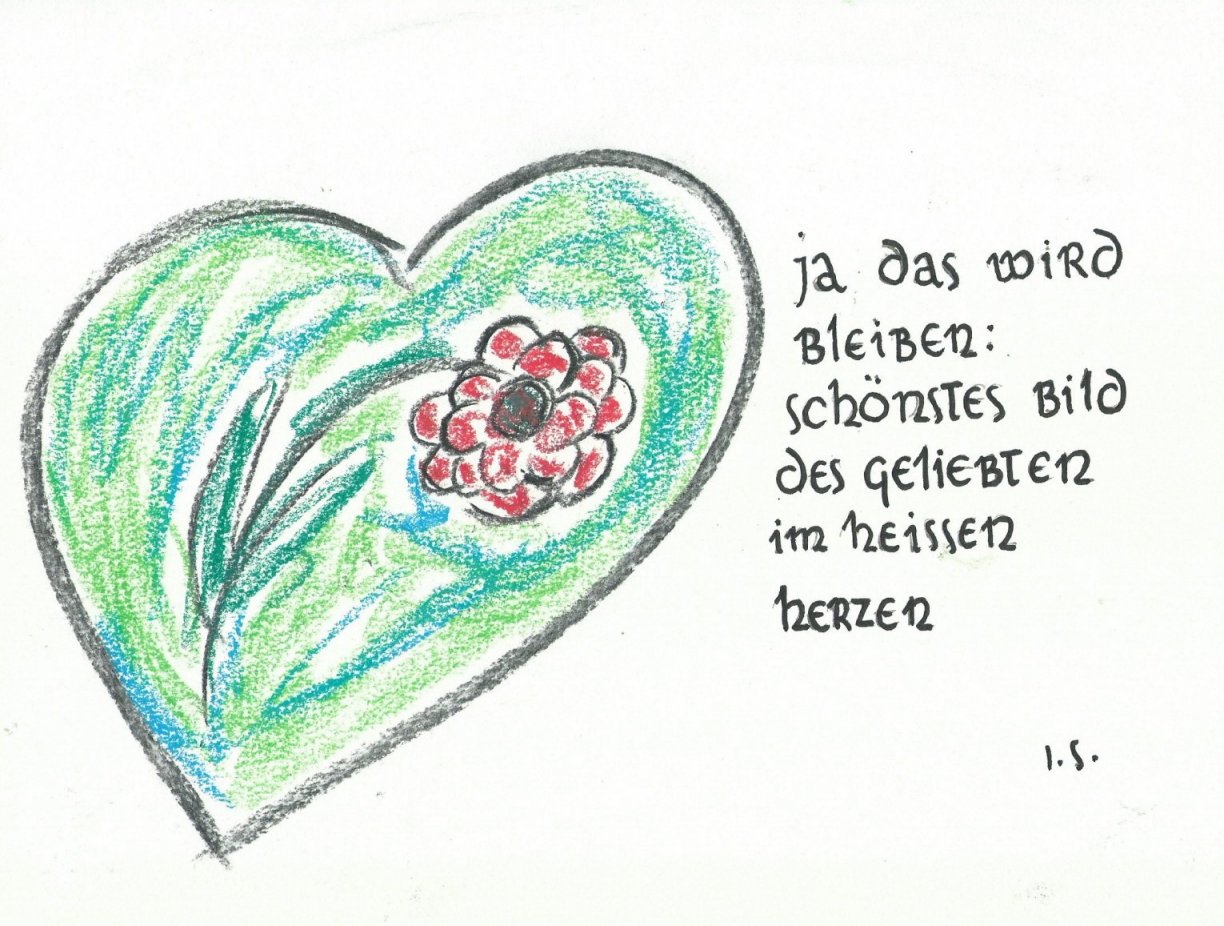 ja das wird
bleiben:
schönstes bild
des geliebten
im heissen
herzen
I.S.